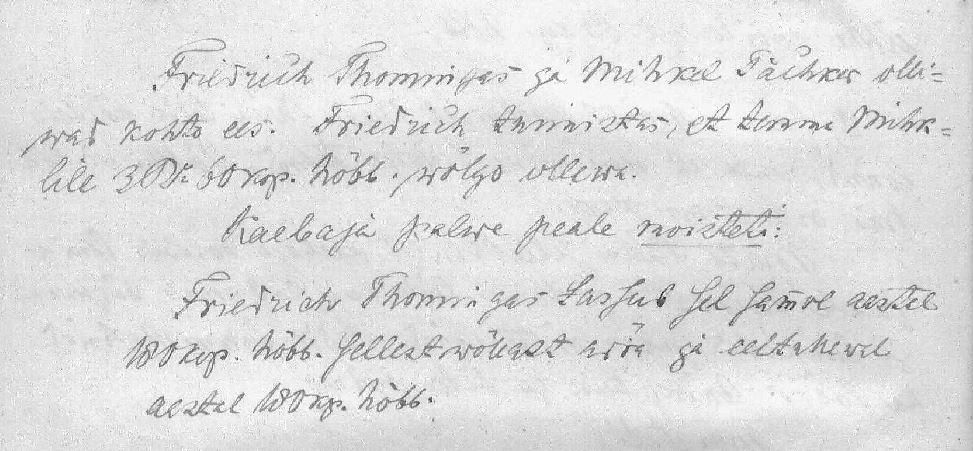 Friedrich Thomingas ja Mihkel Pächker olli=
wad kohto ees. Friedrich tunnistas, et temma Mihk=
lile 3 Rb. 60 kop. höbb. wölgo ollewa.
Kaebaja palwe peale moisteti:
Friedrich Thomingas Sel sammol aastal
180 kop. höbb. sellest wölgast ärra ja eeltulewel
aastal 180 kop. höbb.